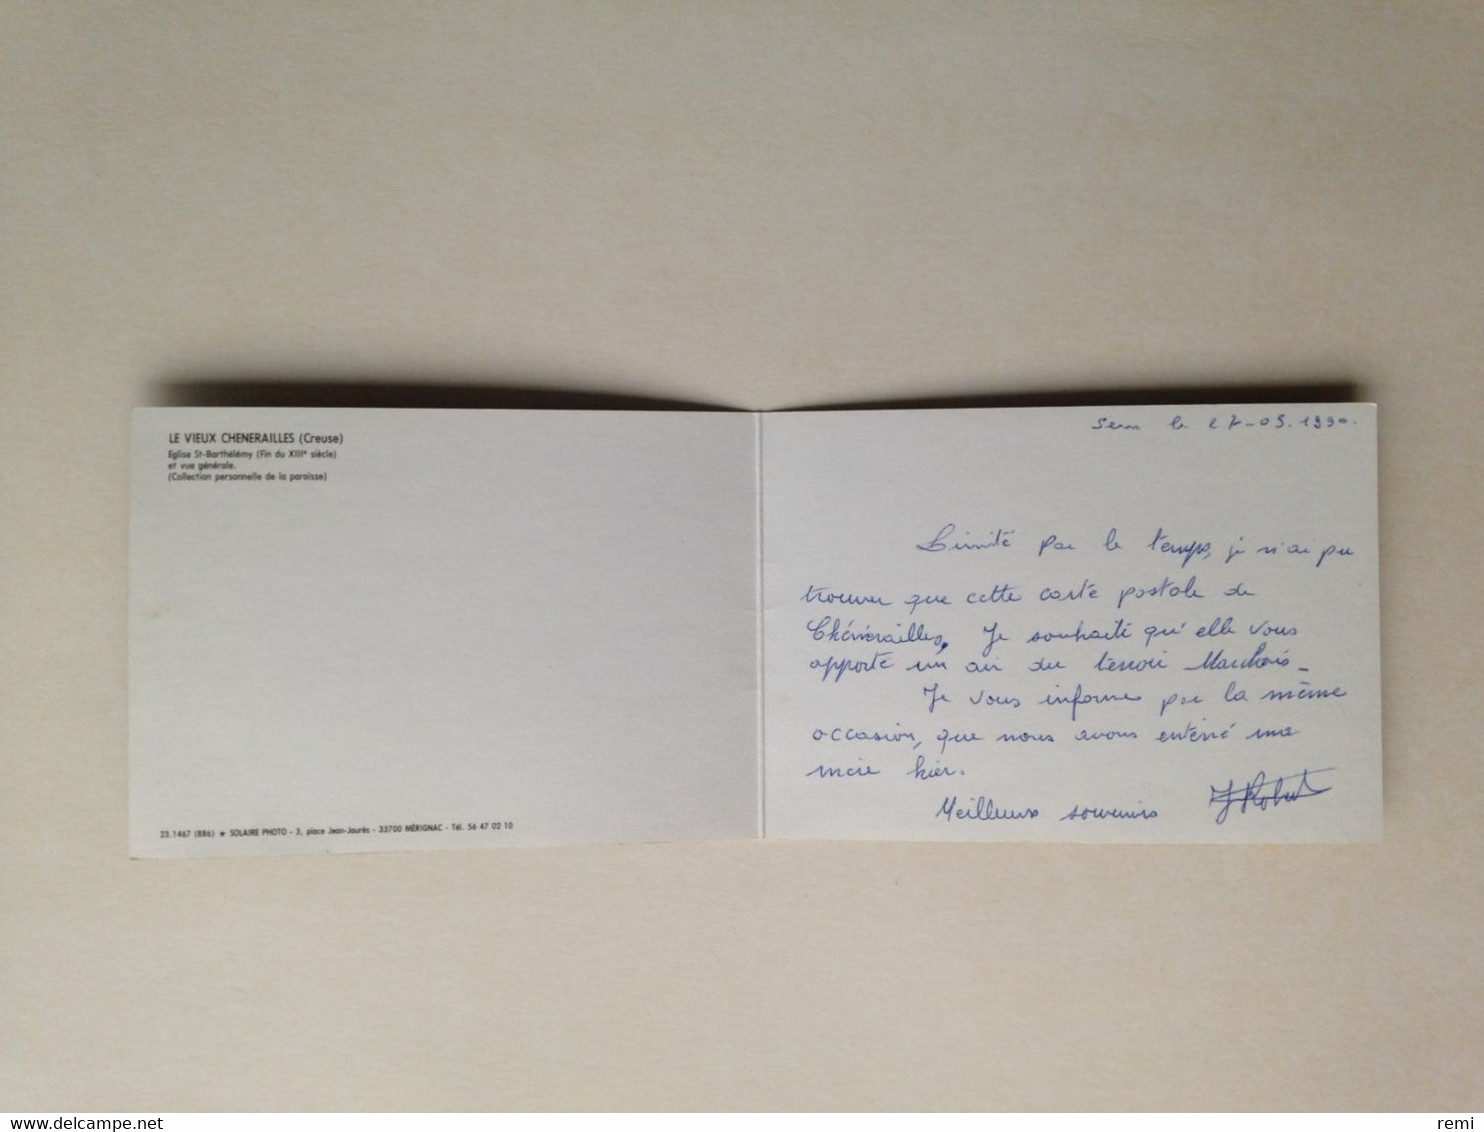 LE VIEUX CHENERAILLES (Creuse)
Eglise St-Barthélémy (Fin du XIIIe siècle)
et vue générale.
(Collection personnelle de la paroisse)
23.1467 (886) ★ SOLAIRE PHOTO - 3, place Jean-Jaurès - 33700 MÉRIGNAC - Tél. 56 47 02 10
le 27-05.1990.
Limité par le temps, je n'ai pu
trouver que cette carte postale de
Chénérailles. Je souhaite qu'elle vous
apporte un air du terroir Marchois_
Je vous informe par la même
occasion, que nous avons enterré une
hier.
Meilleurs souvenirs J Robert
delcampe.net
remi